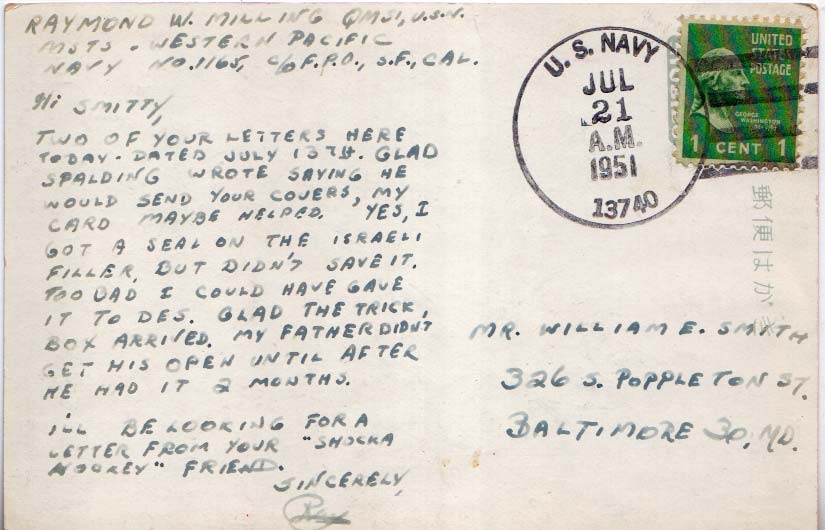 RAYMOND W. MILLING QMS1, U.S.N.
MSTS. WESTERN PACIFIC
NAVY NO. 1165, c/o F.P.O., S.F., CAL.
Hi SMITTY,
TWO OF YOUR LETTERS HERE
TODAY. DATED JULY 13TH. GLAD
SPALDING WROTE SAYING HE
WOULD SEND YOUR COVERS, MY
CARD MAYBE HELPED. YES, I
GOT A SEAL ON THE ISRAELI
FILLER, BUT DIDN'T SAVE IT.
TOO BAD I COULD HAVE GAVE
IT TO DES. GLAD THE TRICK,
BOX ARRIVED. MY FATHER DIDN'T
GET HIS OPEN UNTIL AFTER
HE HAD IT 2 MONTHS.
I'LL BE LOOKING FOR A
LETTER FROM YOUR "SHOCKA
NOOKEY" FRIEND.
SINCERELY,
Ray
U. S. NAVY
JUL
21
A.M.
1951
13740
UNITED
STATES
POSTAGE
GEORGE
WASHINGTON
1 CENT 1
郵便はがき
MR. WILLIAM E. SMITH
326 S. POPPLETON ST.
BALTIMORE 30, MD.